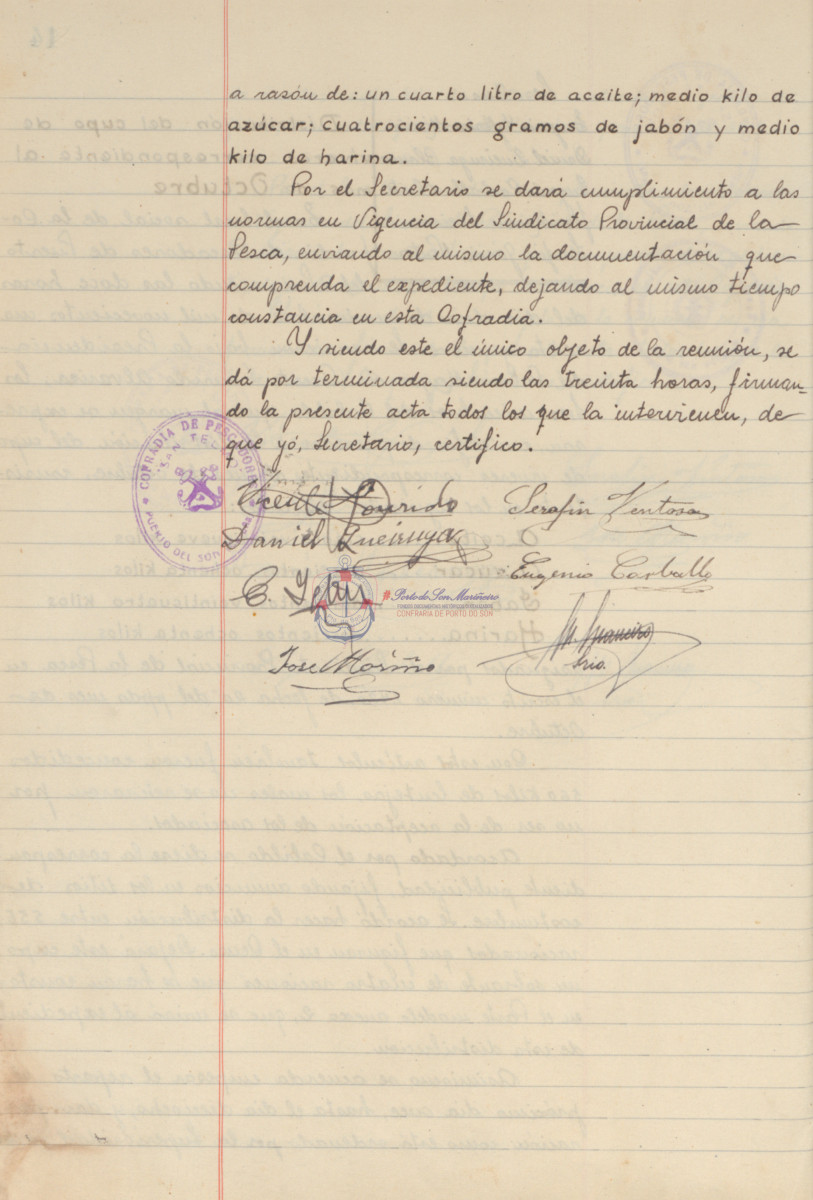 a razón de: un cuarto litro de aceite; medio kilo de
azúcar; cuatrocientos gramos de jabón y medio
kilo de harina.
Por el Secretario se dará cumplimiento a las
normas en Vigencia del Sindicato Provincial de la
Pesca, enviando al mismo la documentación que
comprenda el expediente, dejando al mismo tiempo
constancia en esta Cofradia.
Y siendo este el único objeto de la reunión, se
dá por terminada siendo las treinta horas, firman-
do la presente acta todos los que la intervienen, de
que yó, Secretario, certifico.
COFRADIA DE PESCADORES
SAN TELMO
PUERTO DEL SON
Vicente Pourido Serafin Ventosa
Daniel Queiruga
Eugenio Carballo
Porto do Son Mariñeiro
CONFRARÍA DE PORTO DO SON
Jose Mariño
Srio.